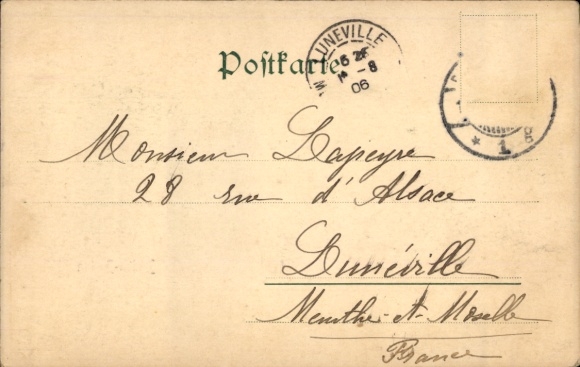 Postkarte
LUNEVILLE
8
06
1
Monsieur Lapeyre
28 rue d'Alsace
Lunéville
Meurthe-et-Moselle
France